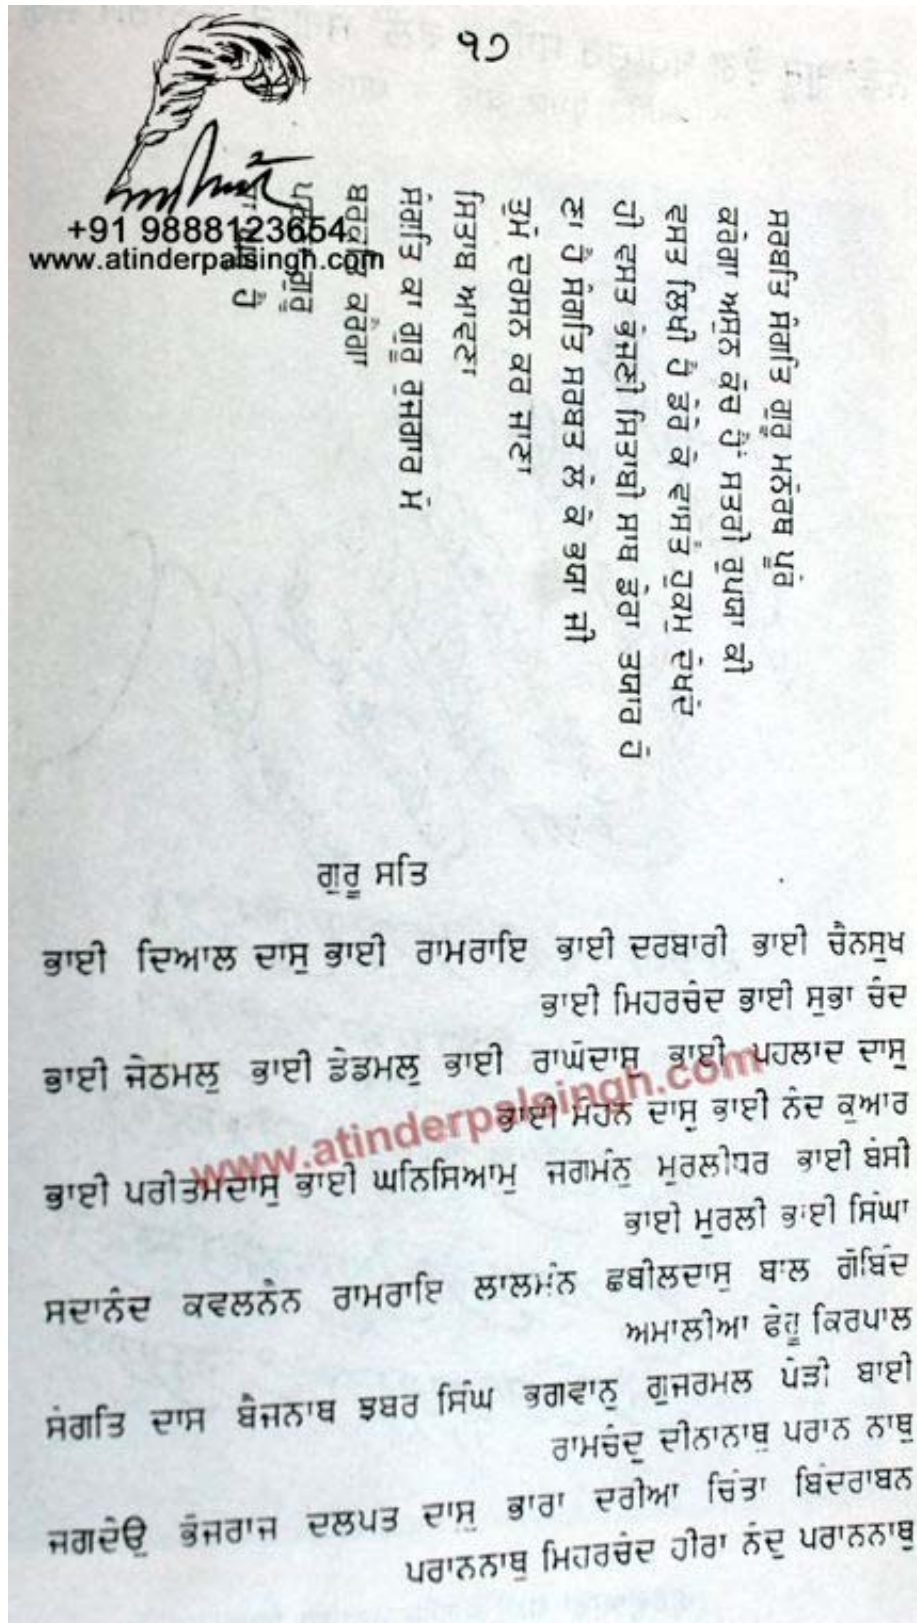 ੧੭
+91 9888123654
www.atinderpalsingh.com
ਸਰਬਤਿ ਸੰਗਤਿ ਗੁਰੂ ਮਨੋਰਥ ਪੂਰੇ
ਕਰੇਗਾ ਅਸੁਨ ਕੋਚ ਹੈਂ ਸਤਰੀ ਰੁਪਯਾ ਕੀ
ਵਸਤ ਲਿਖੀ ਹੈ ਡੇਰੇ ਕੇ ਵਾਸਤੇ ਹੁਕਮੁ ਦੇਖਦੇ
ਹੀ ਵਸਤ ਭੇਜਣੀ ਸਿਤਾਬੀ ਸਾਥ ਡੇਰਾ ਤਯਾਰ ਹੋ
ਣਾ ਹੈ ਸੰਗਤਿ ਸਰਬਤ ਨੇ ਕੇ ਭਯਾ ਜੀ
ਤੁਮੇ ਦਰਸਨ ਕਰ ਜਾਣਾ
ਸਿਤਾਬ ਆਵਣਾ
ਸੰਗਤਿ ਕਾ ਗੁਰੂ ਰੁਜਗਾਰ ਮੇ
ਬਰਕਤਿ ਕਰੇਗਾ
ਗੁਰੂ
ਹੈ
ਗੁਰੂ ਸਤਿ
ਭਾਈ ਦਿਆਲ ਦਾਸੁ ਭਾਈ ਰਾਮਰਾਇ ਭਾਈ ਦਰਬਾਰੀ ਭਾਈ ਚੈਨਸੁਖ
ਭਾਈ ਮਿਹਰਚੰਦ ਭਾਈ ਸੁਭਾ ਚੰਦ
ਭਾਈ ਜੇਠਮਲੁ ਭਾਈ ਡੇਡਮਲੁ ਭਾਈ ਰਾਘੋਦਾਸੁ ਭਾਈ ਪਹਲਾਦ ਦਾਸੁ
ਭਾਈ ਮੋਹਨ ਦਾਸੁ ਭਾਈ ਨੰਦ ਕੁਆਰ
www.atinderpalsingh.com
ਭਾਈ ਪਰੀਤਮਦਾਸੁ ਭਾਈ ਘਨਿਸਿਆਮੁ ਜਗਮੰਨੁ ਮੁਰਲੀਧਰ ਭਾਈ ਬੰਸੀ
ਭਾਈ ਮੁਰਲੀ ਭਾਈ ਸਿੰਘਾ
ਸਦਾਨੰਦ ਕਵਲਨੈਨ ਰਾਮਰਾਇ ਲਾਲਮੰਨ ਛਬੀਲਦਾਸੁ ਬਾਲ ਗੋਬਿੰਦ
ਅਮਾਲੀਆ ਫੇਰੂ ਕਿਰਪਾਲ
ਸੰਗਤਿ ਦਾਸ ਬੈਜਨਾਥ ਝਬਰ ਸਿੰਘ ਭਗਵਾਨੁ ਗੁਜਰਮਲ ਪੇੜੀ ਬਾਈ
ਰਾਮਚੰਦੁ ਦੀਨਾਨਾਥੁ ਪਰਾਨ ਨਾਥੁ
ਜਗਦੇਉ ਭੋਜਰਾਜ ਦਲਪਤ ਦਾਸੁ ਭਾਰਾ ਦਰੀਆ ਚਿੰਤਾ ਬਿੰਦਰਾਬਨ
ਪਰਾਨਨਾਥੁ ਮਿਹਰਚੰਦ ਹੀਰਾ ਨੰਦੁ ਪਰਾਨਨਾਥੁ